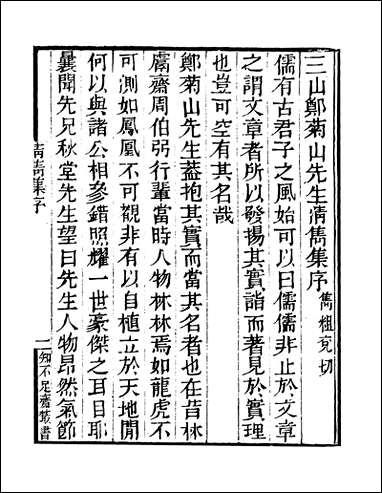 三山鄭菊山先生清雋集序 雋祖兗切
儒有古君子之風始可以曰儒儒非止於文章
之謂文章者所以發揚其實詣而著見於實理
也豈可空有其名哉
鄭菊山先生蓋抱其實而當其名者也在昔林
鬳齋周伯弜行輩當時人物林林焉如龍虎不
可測如鳳凰不可觀非有以自植立於天地間
何以與諸公相參錯照耀一世豪傑之耳目耶
曩聞先兄秋堂先生望曰先生人物昂然氣節
清雋集序
一 知不足齋叢書